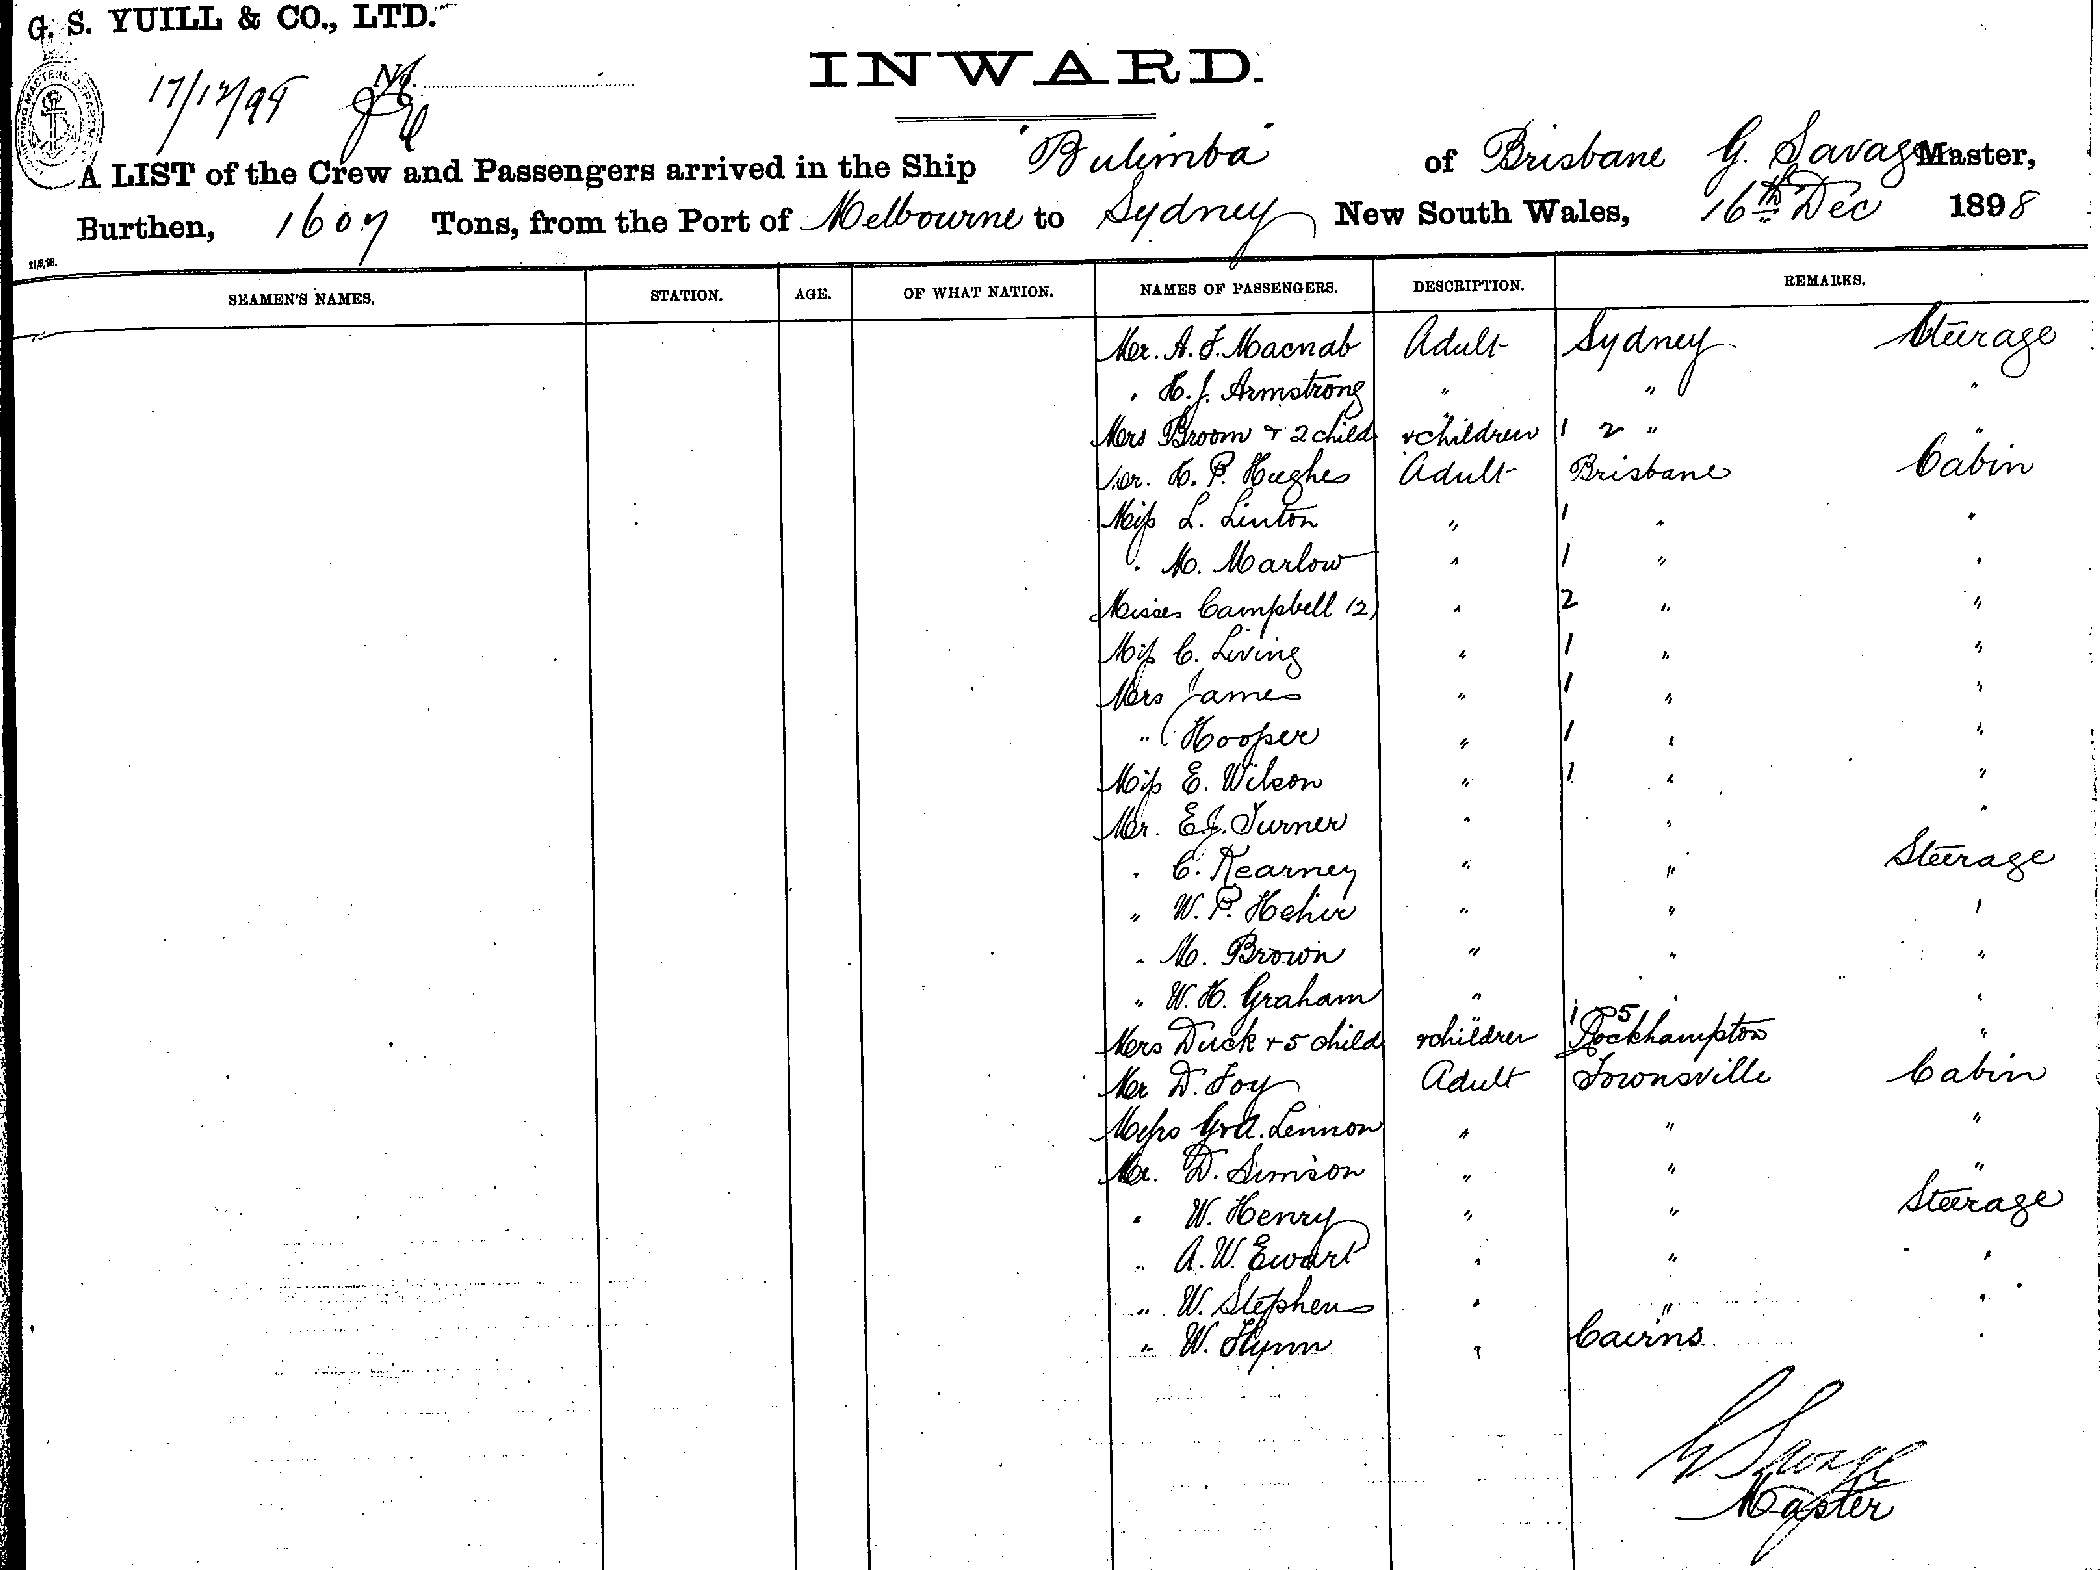 G. S. YUILL & CO., LTD.
INWARD.
17/12/98 No.
A LIST of the Crew and Passengers arrived in the Ship "Bulimba" of Brisbane G. Savage Master,
Burthen, 1607 Tons, from the Port of Melbourne to Sydney New South Wales, 16th Dec 1898
SEAMEN'S NAMES. STATION. AGE. OF WHAT NATION. NAMES OF PASSENGERS. DESCRIPTION. REMARKS.
Mr. A. F. Macnab Adult Sydney Steerage
" H. J. Armstrong " " "
Mrs Broom + 2 child " + children 1 2 " "
Mr. H. P. Hughes Adult Brisbane Cabin
Miss L. Linton " 1 " "
" M. Marlow " 1 " "
Misses Campbell (2) " 2 " "
Miss C. Living " 1 " "
Mrs James " 1 " "
" Hooper " 1 " "
Miss E. Wilson " 1 " "
Mr. E. J. Turner " " "
" C. Kearney " " Steerage
" W. P. Hehir " " "
" M. Brown " " "
" W. H. Graham " " "
Mrs Duck + 5 child " + children 1 5 Rockhampton "
Mr D. Foy Adult Townsville Cabin
Messrs G + A. Lennon " " "
Mr. D. Simson " " "
" W. Henry " " Steerage
" A. W. Ewart " " "
" W. Stephens " " "
" W. Flynn " Cairns "
G Savage
Master